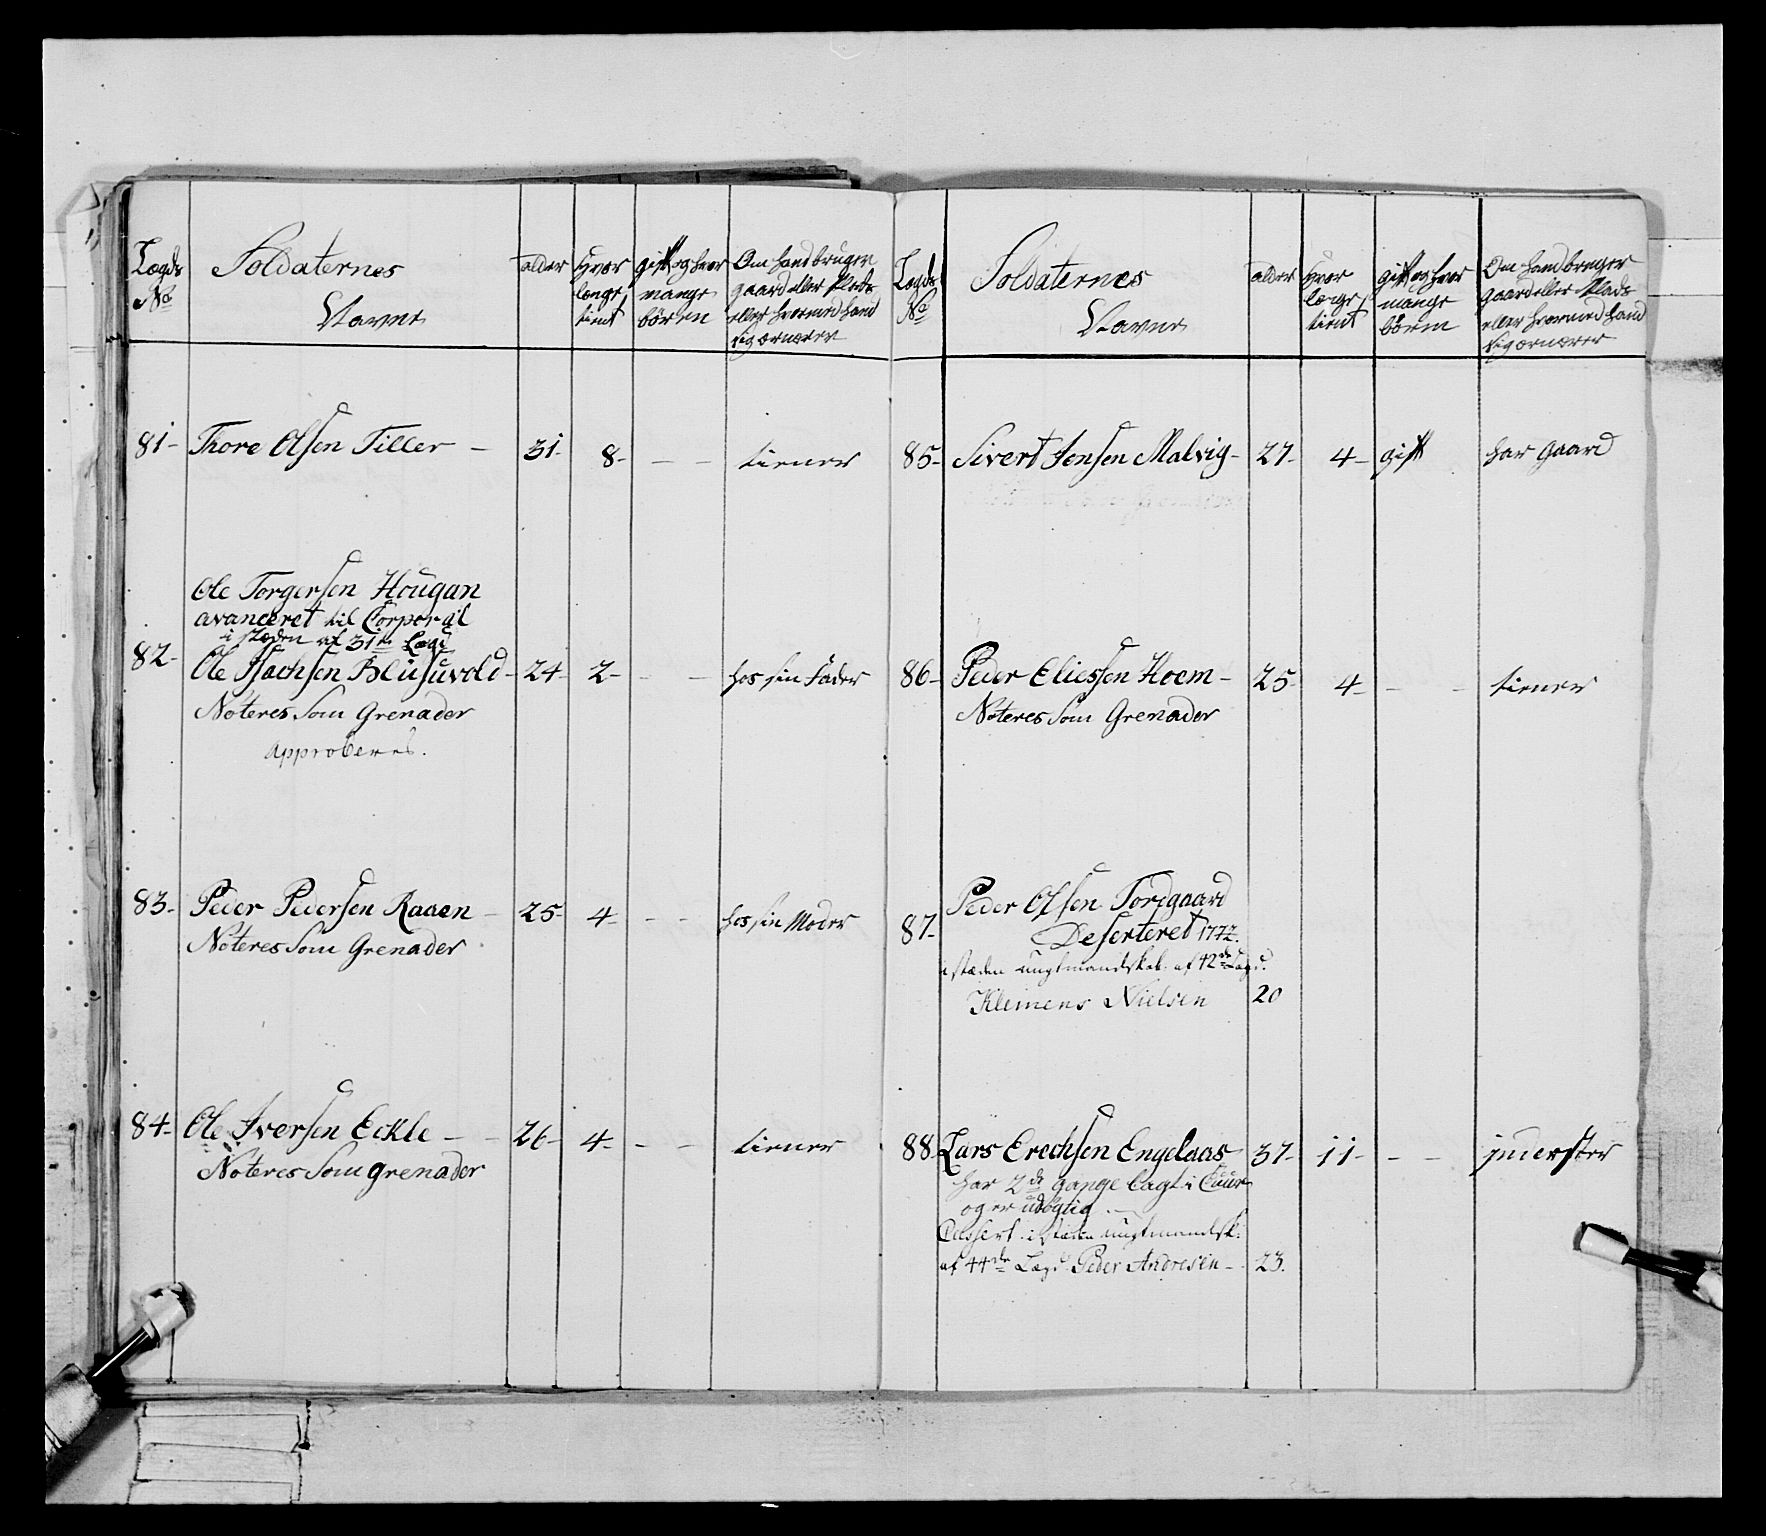 Lægds No
Soldaternes Navne
alder
Hvor længe tient
gift og hvor mange börn
Om hand bruger gaard eller Plads eller hvormed hand sig ernærer
81- Thore Olsen Tiller - 31- 8- - - tiener
Ole Torgersen Hougan
avanceret til Corporal
i stæden af 31te Lægd
82- Ole Isachsen - 24- 2- - - hos sin Fader
Noteres Som Grenader
approberes.
83- Peder Pedersen Raaen - 25- 4- - - hos sin Moder
Noteres Som Grenader
84- Ole Iversen Eckle - - 26- 4- - - tiener
Noteres Som grenader
Lægds No
Soldaternes Navne
alder
Hvor længe tient
gift og hvor mange börn
Om hand bruger gaard eller Plads eller hvormed hand sig ernærer
85- Sivert Jensen Malvig- 27- 4- gift har Gaard
86- Peder Eliessen Hoem- 25- 4- - - tiener
Noteres Som Grenader
Peder Olsen Torgaard
87- Deserteret 1772.
i stæden ungtmandskab. af 42de Lægd.
Klemens Nielsen 20
88 Lars Erechsen Engelaas 37- 11- - - inderster
har 2de gange lagt i Cuur
og er udögtig.
Casseret. i stæden ungtmandsk:
af 44de Lægd Peder Andresen - 23.